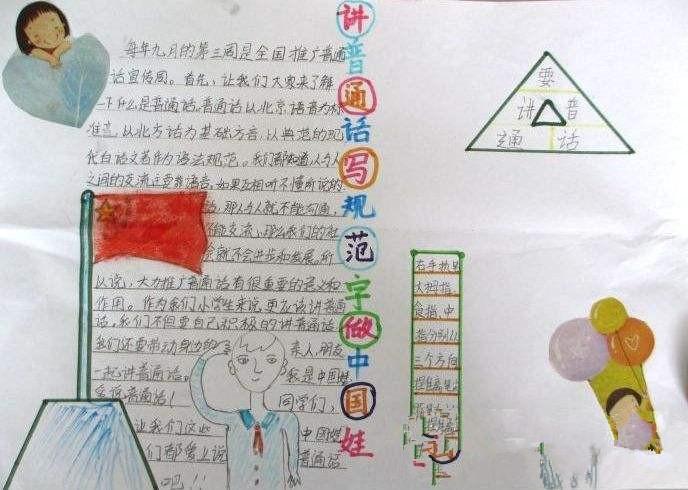 讲普通话写规范字做中国娃
每年九月的第三周是全国推广普通
话宣传周。首先，让我们大家来了解
一下什么是普通话。普通话以北京语音为标
准音，以北方话为基础方言，以典范的现
代白话文著作为语法规范。我们都知道，人与人
之间的交流主要靠语言，如果互相听不懂所说的
话，那人与人就不能沟通，
不能交流，那么我们的社
会就不会进步和发展。所
以说，大力推广普通话有很重要的意义和
作用。作为我们小学生来说，更应该讲普通
话，我们不但要自己积极的讲普通话，
我们还要带动身边的 亲人、朋友
一起讲普通话。 我是中国娃
爱说普通话！ 同学们，
让我们这些 中国娃
们都爱上说 普通话
吧！！
要
讲 普
通 话
右手执笔
大拇指、
食指、中
指分别从
三个方向
捏住离笔